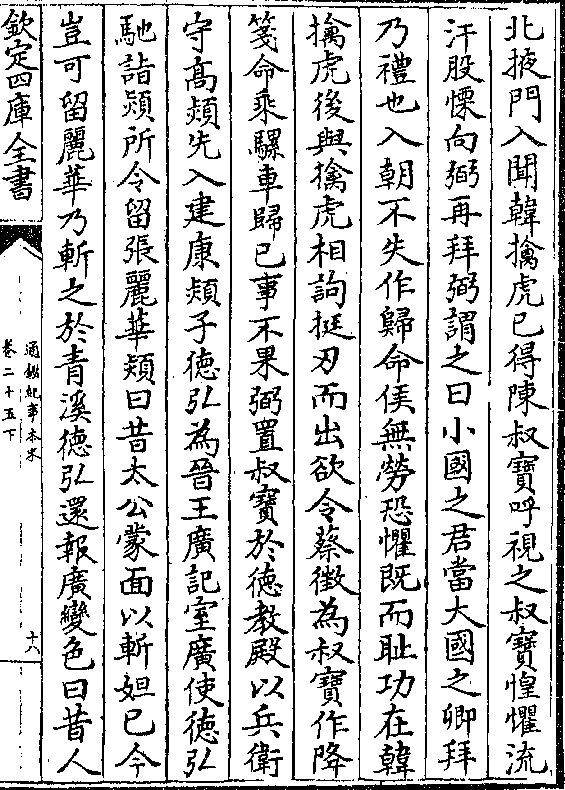 北掖門入聞韓擒虎已得陳叔寶呼視之叔寶惶懼流
汗股慄向弼再拜弼謂之曰小國之君當大國之卿拜
乃禮也入朝不失作歸命侯無勞恐懼既而耻功在韓
擒虎後與擒虎相訽挺刃而出欲令蔡徴為叔寶作降
箋命乘騾車歸已事不果弼置叔寶於徳教殿以兵衛
守高熲先入建康熲子徳弘為晉王廣記室廣使徳弘
馳詣熲所令留張麗華熲曰昔太公蒙面以斬妲已今
豈可留麗華乃斬之於青溪徳弘還報廣變色曰昔人
欽定四庫全書
通鑑紀事本末
卷二十五下
十六